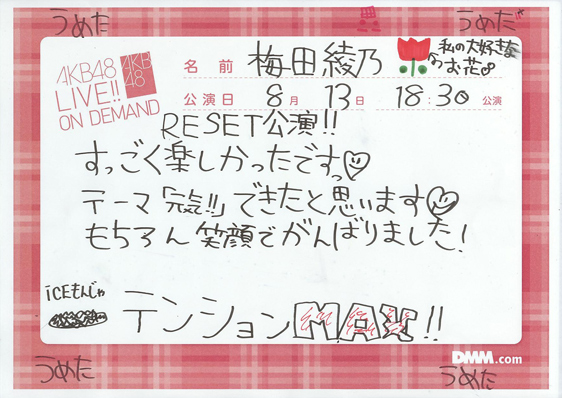 うめだ
うめだ
AKB48
LIVE!!
ON DEMAND
AKB
48
名前 梅田綾乃
私の大好きな
お花
公演日 8月 13日 18:30 公演
RESET公演!!
すっごく楽しかったですっ
テーマ「元気!!」できたと思います
もちろん笑顔でがんばりました!
ICEもんじゃ
テンションMAX!!
DMM.com
うめた
うめた